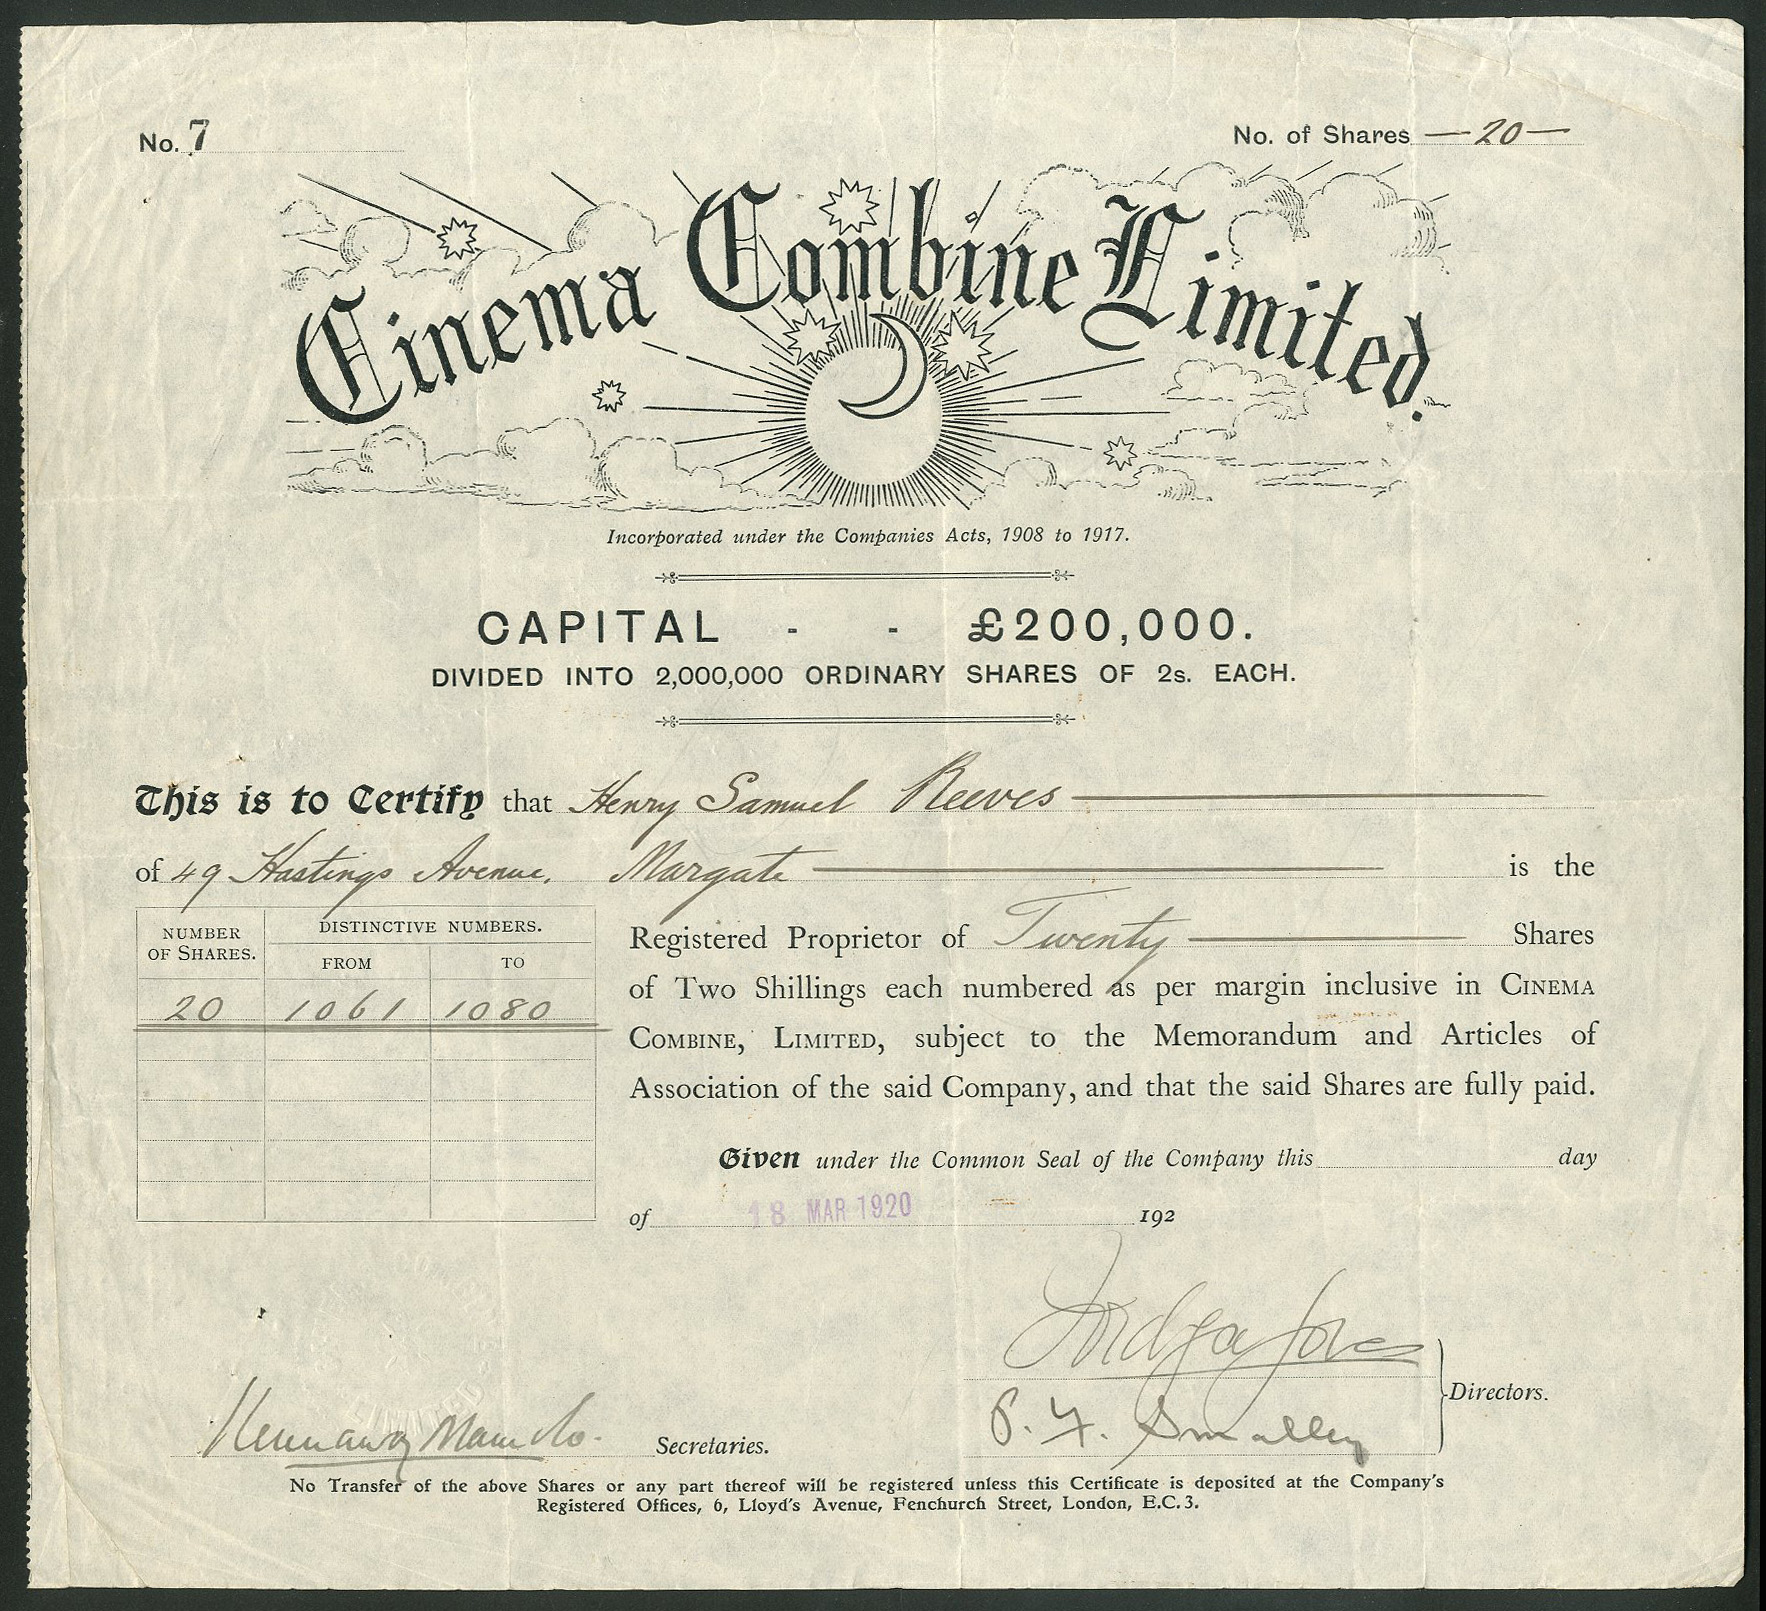 No. 7
No. of Shares —20—
Cinema Combine Limited.
Incorporated under the Companies Acts, 1908 to 1917.
CAPITAL - - £200,000.
DIVIDED INTO 2,000,000 ORDINARY SHARES OF 2s. EACH.
This is to Certify that Henry Samuel Reeves
of 49 Hastings Avenue, Margate is the
NUMBER OF SHARES.
DISTINCTIVE NUMBERS.
FROM TO
20 1061 1080
Registered Proprietor of Twenty Shares
of Two Shillings each numbered as per margin inclusive in CINEMA
COMBINE, LIMITED, subject to the Memorandum and Articles of
Association of the said Company, and that the said Shares are fully paid.
Given under the Common Seal of the Company this day
of 18 MAR 1920 192
Jones
P. F. Smalley
Directors.
Secretaries.
No Transfer of the above Shares or any part thereof will be registered unless this Certificate is deposited at the Company's
Registered Offices, 6, Lloyd's Avenue, Fenchurch Street, London, E.C.3.